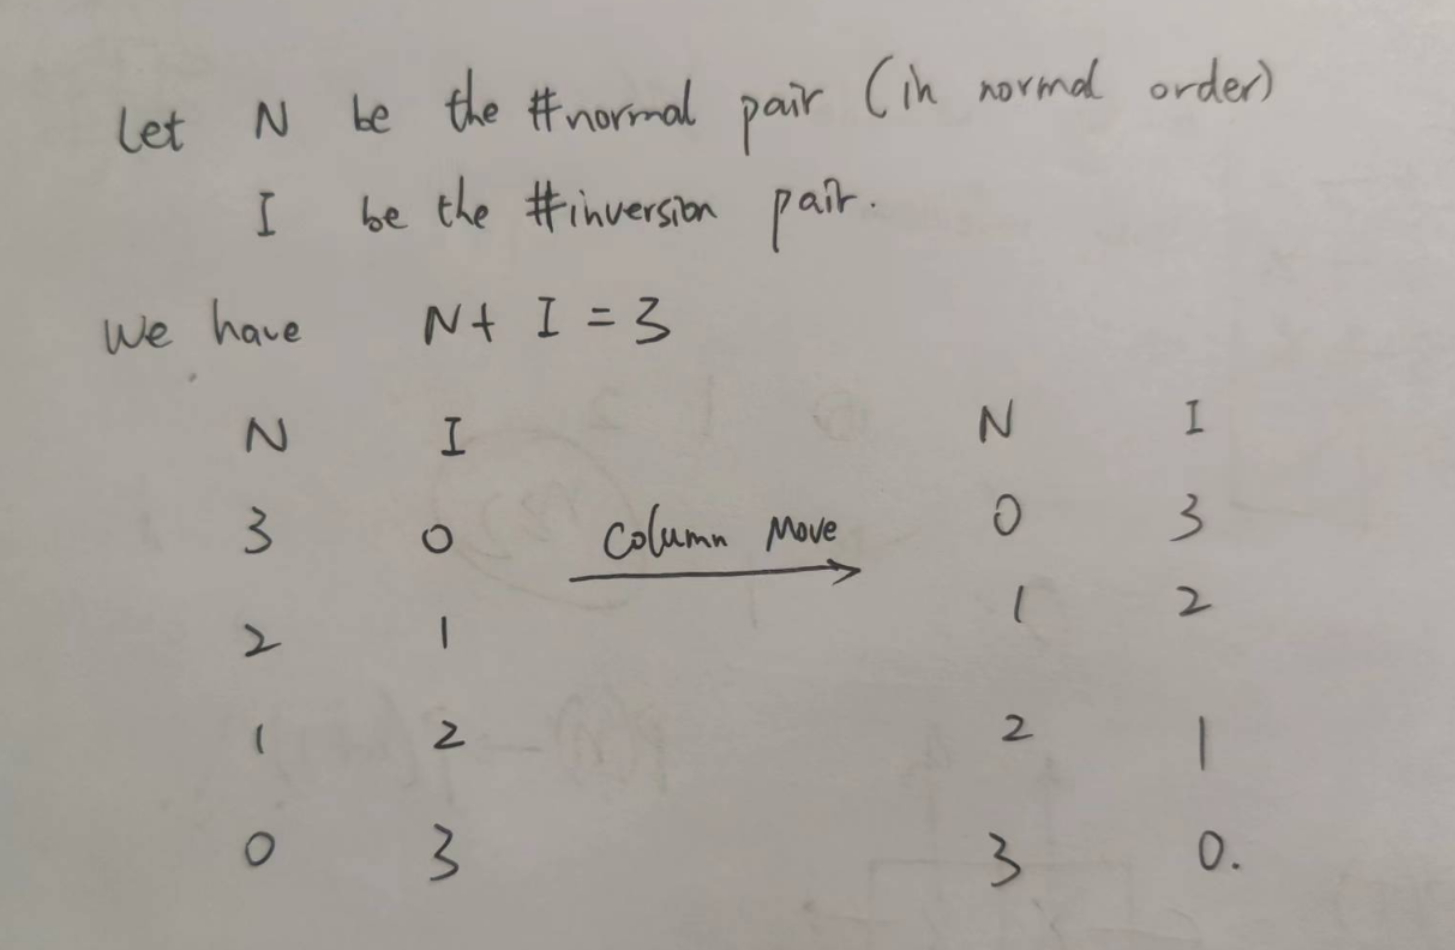 Let N be the #normal pair (in normal order)
I be the #inversion pair.
We have N + I = 3
N I N I
3 0 Column Move 0 3
2 1 1 2
1 2 2 1
0 3 3 0.